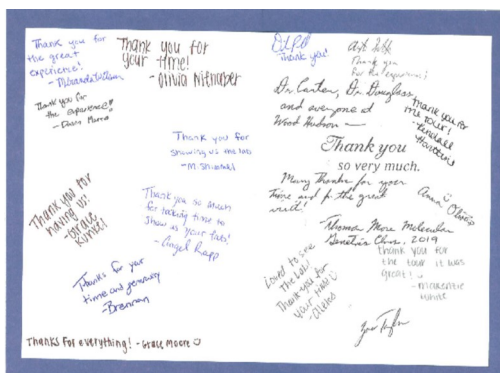 Thank you for
the great
experience!
Thank you for
your time!
- Olivia Nithaber
Thank you for
the experience!!
Thank you for
showing us the lab
- M.
Thank you for
having us!
- Grace
Kunkel
Thank you so much
for taking time to
show us your labs!
- Angel Rapp
Thanks for your
time and generosity
- Brennan
Thanks for everything! - Grace Moore
Thank you!
Thank you
for the experience!
Dr. Carter, Dr. Douglass
and everyone at
Wood Hudson
Thank you for
the tour!
- Kendall
Thank you
so very much.
Many thanks for your
time and for the great
visit!
Anna
Thomas More Molecular
Genetics Class, 2019
Loved to see
the Lab!
Thank you for
your time
thank you for
the tour it was
great!
- Makenzie
White